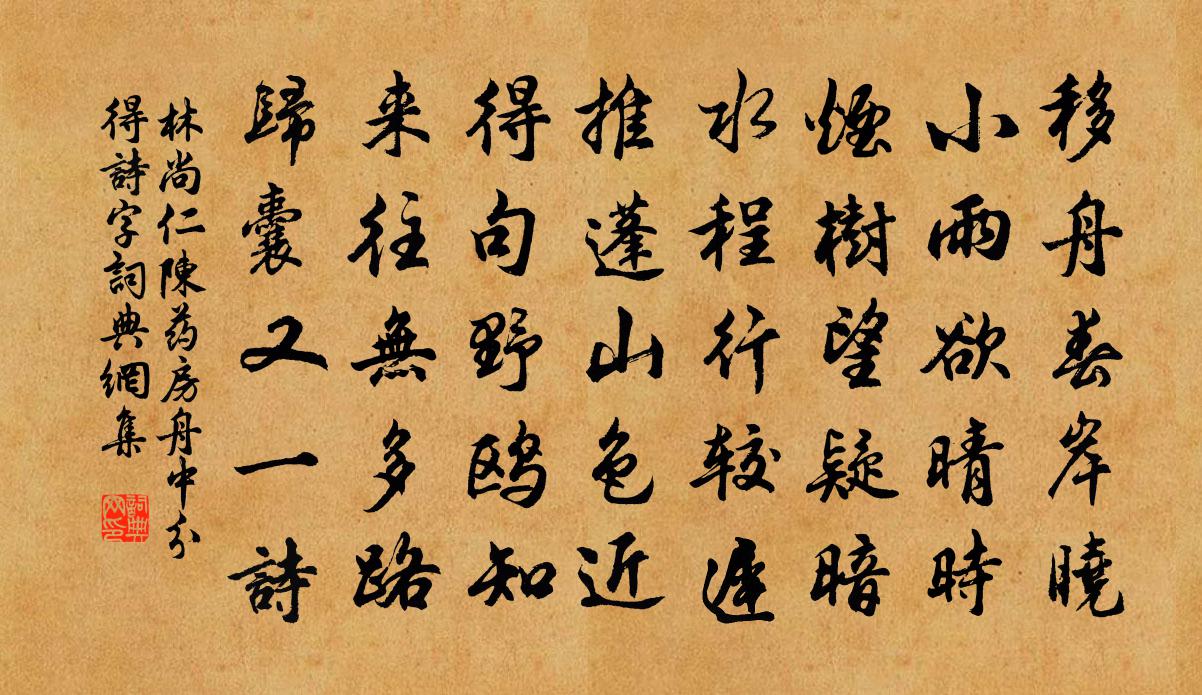 移舟春岸曉
小雨欲晴時
煙樹望疑暗
水程行較遲
推蓬山色近
得句野鸥知
来往無多路
歸囊又一詩
林尚仁陳药房舟中分
得詩字詞典網集
詞典網印